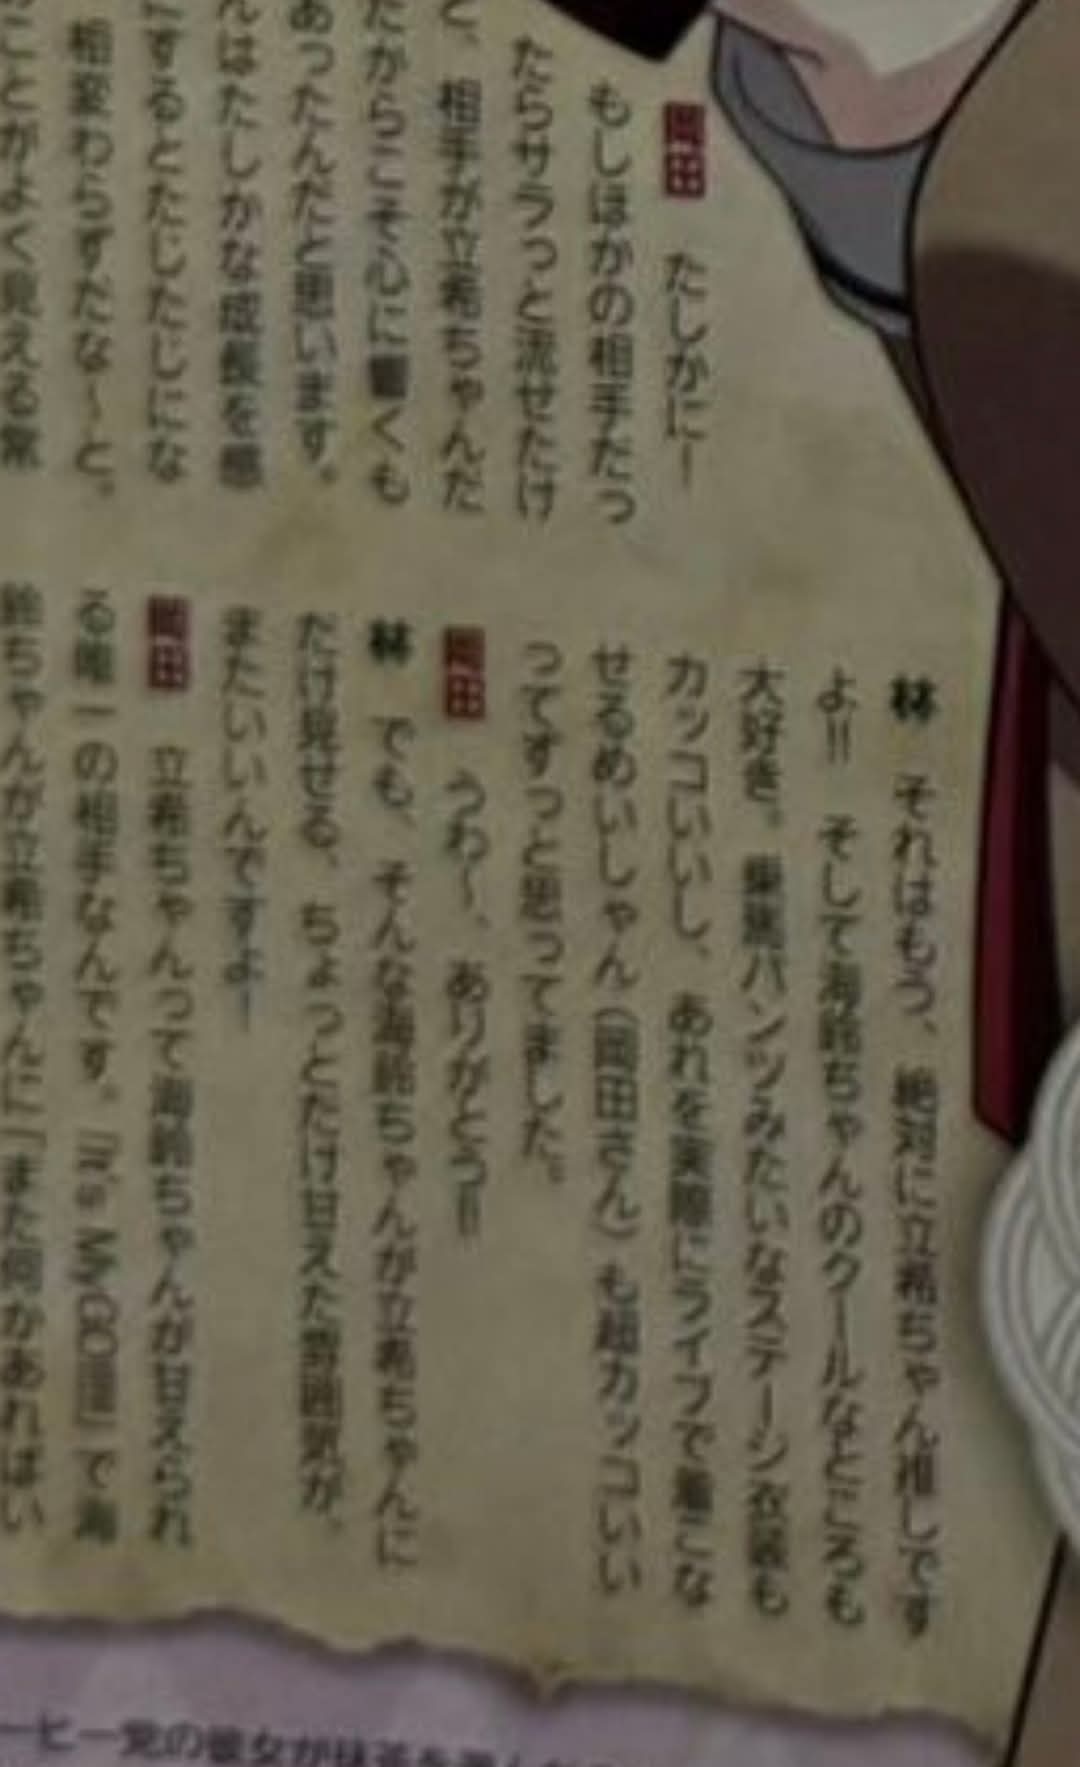 岡田　たしかに！
もしほかの相手だっ
たらサラっと流せたけ
ど、相手が立希ちゃんだ
たからこそ心に響くも
あったんだと思います。
んはたしかな成長を感
にするとたじたじにな
相変わらずだな〜と。
ことがよく見える
林　それはもう、絶対に立希ちゃん推しです
よ!!　そして海鈴ちゃんのクールなところも
大好き。乗馬パンツみたいなステージ衣装も
カッコいいし、あれを実際にライブで着こな
せるめいしゃん（岡田さん）も超カッコいい
ってずっと思ってました。
岡田　うわ〜、ありがとう!!
林　でも、そんな海鈴ちゃんが立希ちゃんに
だけ見せる、ちょっとだけ甘えた雰囲気が、
またいいんですよ！
岡田　立希ちゃんって海鈴ちゃんが甘えられ
る唯一の相手なんです。『It's MyGO!!!!!』で海
鈴ちゃんが立希ちゃんに「また何かあればい
ーヒー党の彼女が抹茶を